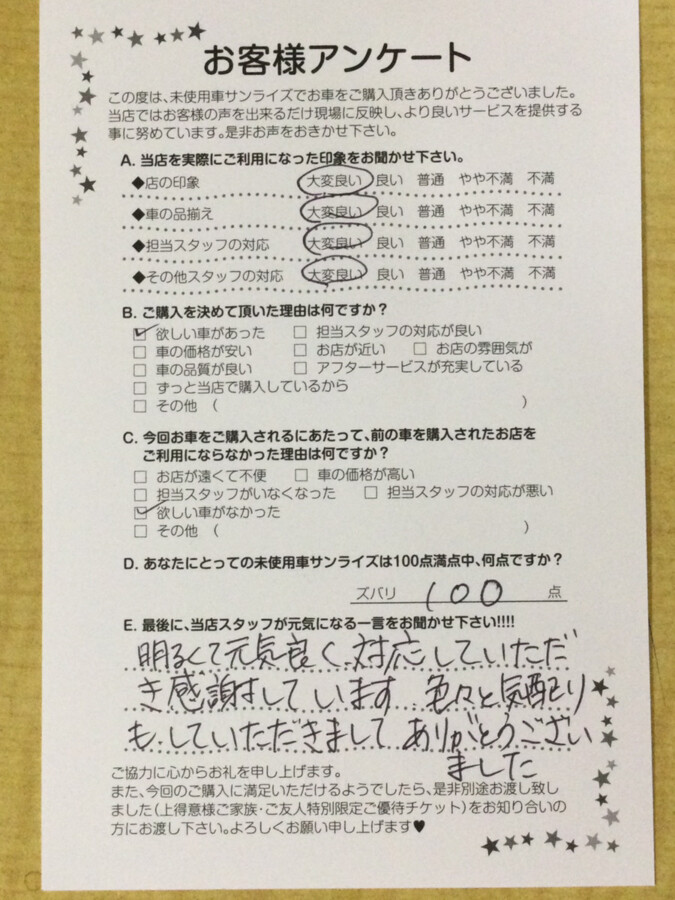 お客様アンケート
この度は、未使用車サンライズでお車をご購入頂きありがとうございました。
当店ではお客様の声を出来るだけ現場に反映し、より良いサービスを提供する
事に努めています。是非お声をおきかせ下さい。
A. 当店を実際にご利用になった印象をお聞かせ下さい。
◆店の印象 大変良い 良い 普通 やや不満 不満
◆車の品揃え 大変良い 良い 普通 やや不満 不満
◆担当スタッフの対応 大変良い 良い 普通 やや不満 不満
◆その他スタッフの対応 大変良い 良い 普通 やや不満 不満
B. ご購入を決めて頂いた理由は何ですか?
☑ 欲しい車があった □ 担当スタッフの対応が良い
□ 車の価格が安い □ お店が近い □ お店の雰囲気が
□ 車の品質が良い □ アフターサービスが充実している
□ ずっと当店で購入しているから
□ その他 ( )
C. 今回お車をご購入されるにあたって、前の車を購入されたお店を
ご利用にならなかった理由は何ですか?
□ お店が遠くて不便 □ 車の価格が高い
□ 担当スタッフがいなくなった □ 担当スタッフの対応が悪い
☑ 欲しい車がなかった
□ その他 ( )
D. あなたにとっての未使用車サンライズは100点満点中、何点ですか?
ズバリ 100 点
E. 最後に、当店スタッフが元気になる一言をお聞かせ下さい!!!!
明るくて元気良く対応していただ
き感謝しています 色々と気配り
もしていただきまして ありがとうござい
ました
ご協力に心からお礼を申し上げます。
また、今回のご購入に満足いただけるようでしたら、是非別途お渡し致し
ました(上得意様ご家族・ご友人特別限定ご優待チケット)をお知り合いの
方にお渡し下さい。よろしくお願い申し上げます♥